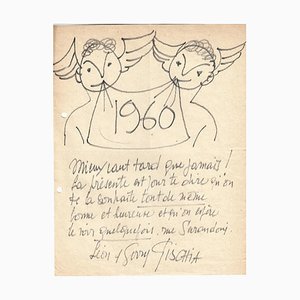 1960
Mieux vaut tard que jamais !
La présente est pour te dire qu'on
te la souhaite tout de même
bonne et heureuse et qu'on espère
te voir quelquefois, rue
Léon & GISCHIA